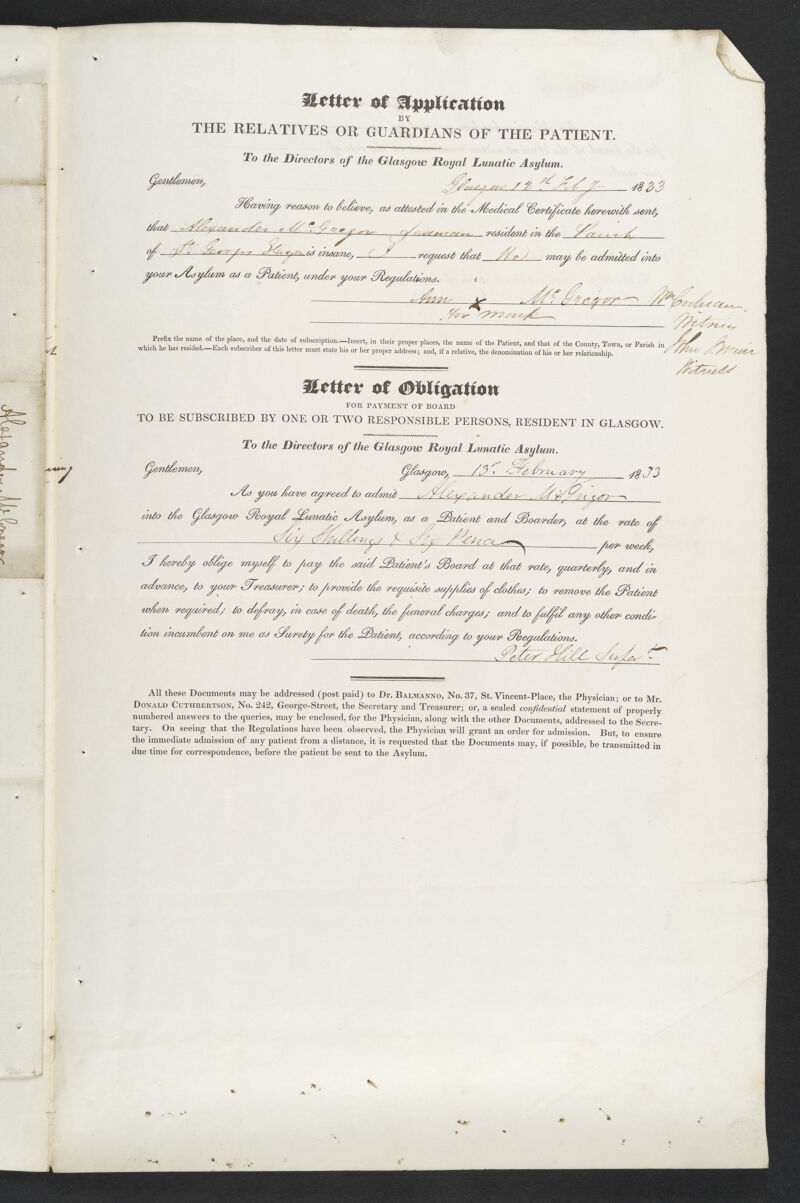 Letter of Application
BY
THE RELATIVES OR GUARDIANS OF THE PATIENT.
To the Directors of the Glasgow Royal Lunatic Asylum.
Gentlemen,
Glasgow 12th Feby 1833
Having reason to believe, as attested in the Medical Certificate herewith sent,
that Alexander McGregor resident in the Parish
of St. Georges Glasgow is insane, I request that He may be admitted into
your Asylum as a Patient, under your Regulations.
Ann x McGregor Wm Cochran
Her mark Witness
Prefix the name of the place, and the date of subscription.—Insert, in their proper places, the name of the Patient, and that of the County, Town, or Parish in
which he has resided.—Each subscriber of this letter must state his or her proper address; and, if a relative, the denomination of his or her relationship.
John
Witness
Letter of Obligation
FOR PAYMENT OF BOARD
TO BE SUBSCRIBED BY ONE OR TWO RESPONSIBLE PERSONS, RESIDENT IN GLASGOW.
To the Directors of the Glasgow Royal Lunatic Asylum.
Gentlemen, Glasgow, 13 February 1833
As you have agreed to admit Alexander McGregor
into the Glasgow Royal Lunatic Asylum, as a Patient and Boarder, at the rate of
Six Shillings & Six Pence per week,
I hereby oblige myself to pay the said Patient's Board at that rate, quarterly, and in
advance, to your Treasurer; to provide the requisite supplies of clothes; to remove the Patient
when required; to defray, in case of death, the funeral charges; and to fulfil any other condi-
tion incumbent on me as Surety for the Patient, according to your Regulations.
Peter Hill Supert.
All these Documents may be addressed (post paid) to Dr. BALMANNO, No. 37, St. Vincent-Place, the Physician; or to Mr.
DONALD CUTHBERTSON, No. 242, George-Street, the Secretary and Treasurer; or, a sealed confidential statement of properly
numbered answers to the queries, may be enclosed, for the Physician, along with the other Documents, addressed to the Secre-
tary. On seeing that the Regulations have been observed, the Physician will grant an order for admission. But, to ensure
the immediate admission of any patient from a distance, it is requested that the Documents may, if possible, be transmitted in
due time for correspondence, before the patient be sent to the Asylum.
Alexander McGregor